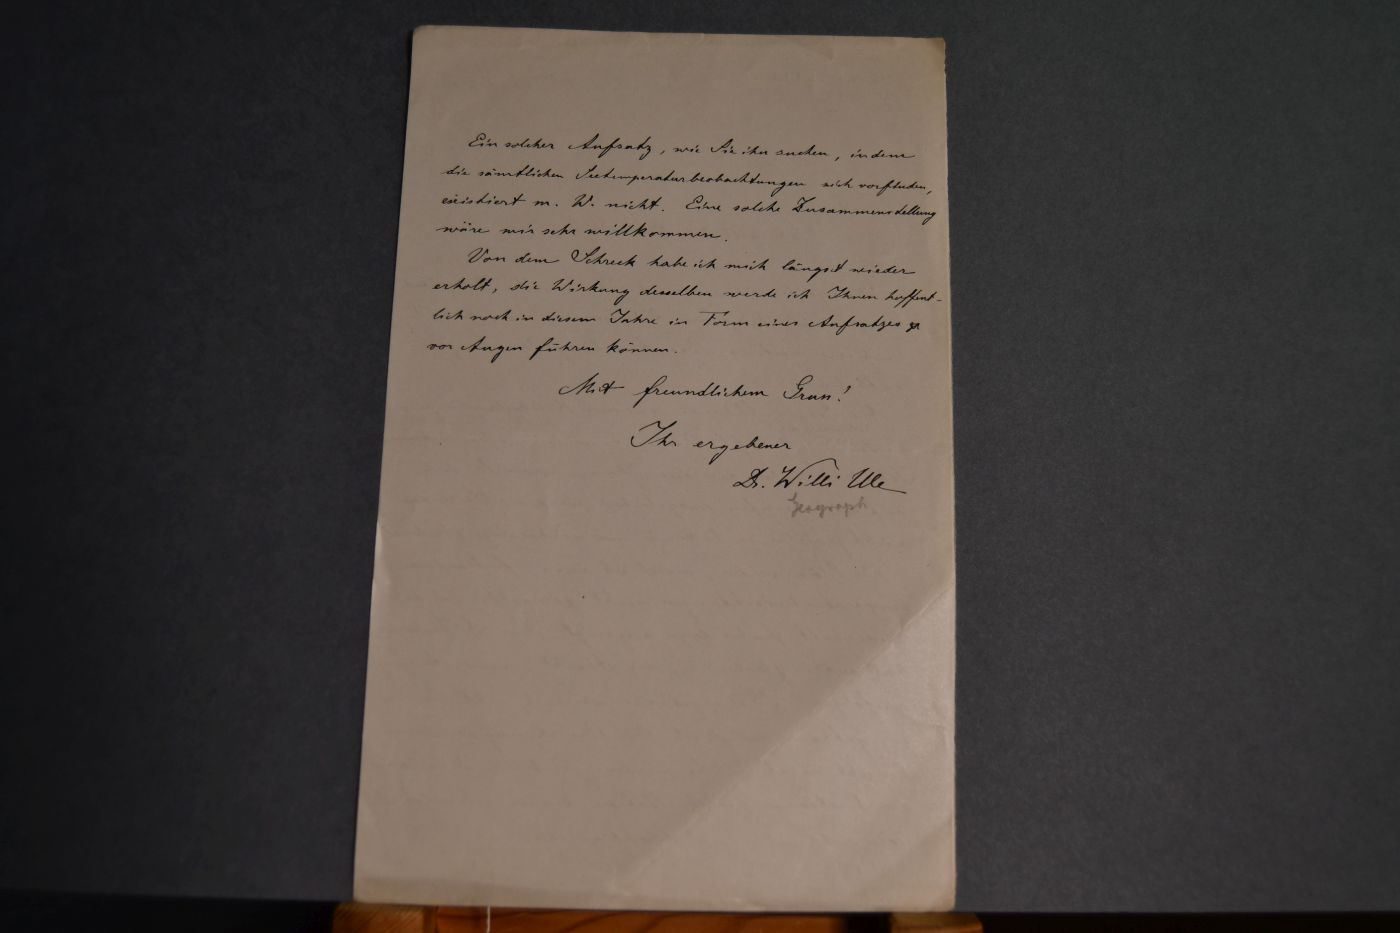 Ein solcher Aufsatz, wie Sie ihn suchen, indem
die sämtlichen Seetemperaturbeobachtungen sich vorfinden,
existiert m. W. nicht. Eine solche Zusammenstellung
wäre mir sehr willkommen.
Von dem Schreck habe ich mich längst wieder
erholt, die Wirkung desselben werde ich Ihnen hoffent-
lich noch in diesem Jahre in Form eines Aufsatzes
vor Augen führen können.
Mit freundlichem Gruss!
Ihr ergebener
Dr. Willi Ule
Geograph